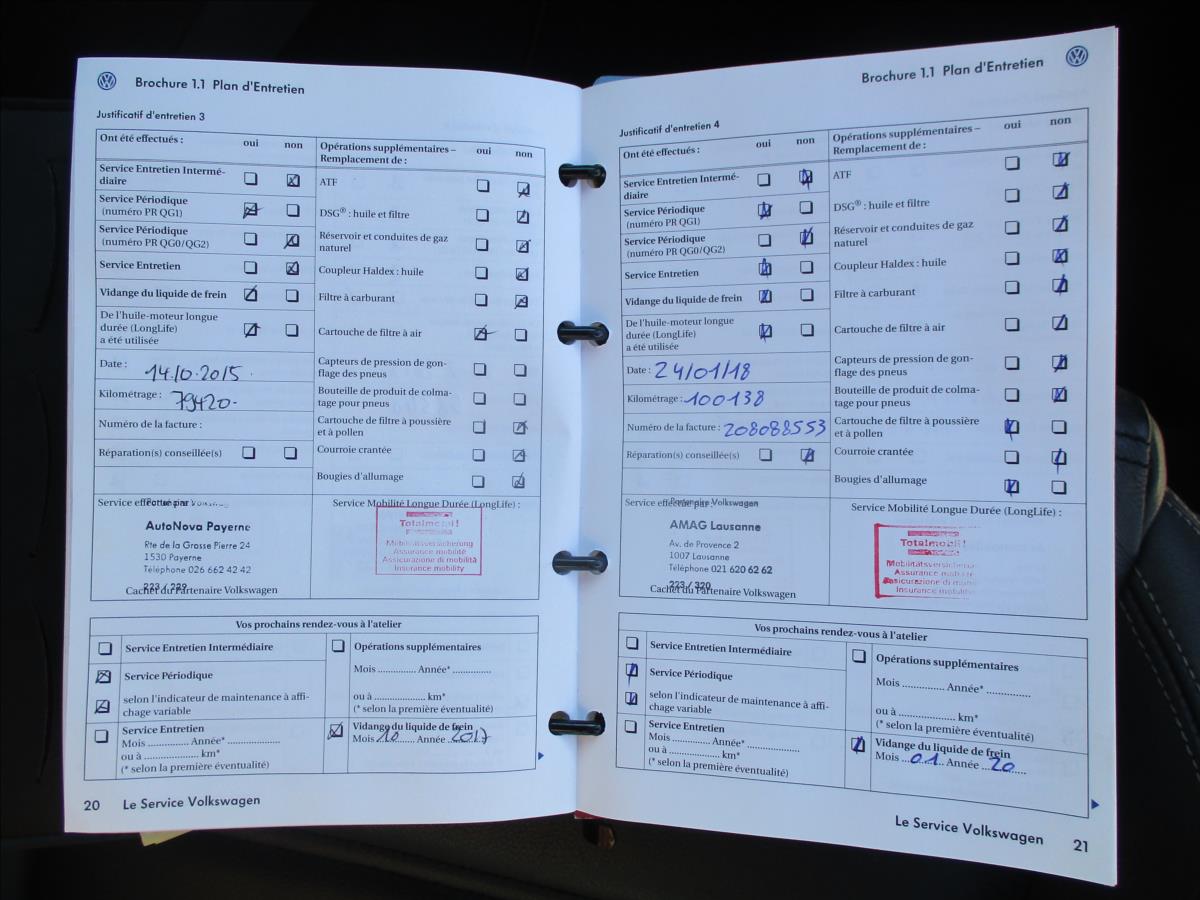 Brochure 1.1 Plan d'Entretien
Justificatif d'entretien 3
Ont été effectués :
oui
non
Service Entretien Intermé-
diaire
Service Périodique
(numéro PR QG1)
Service Périodique
(numéro PR QG0/QG2)
Service Entretien
Vidange du liquide de frein
De l'huile-moteur longue
durée (LongLife)
a été utilisée
Date : 14.10.2015.
Kilométrage : 79420.-
Numéro de la facture :
Réparation(s) conseillée(s)
Opérations supplémentaires –
Remplacement de :
oui
non
ATF
DSG® : huile et filtre
Réservoir et conduites de gaz
naturel
Coupleur Haldex : huile
Filtre à carburant
Cartouche de filtre à air
Capteurs de pression de gon-
flage des pneus
Bouteille de produit de colma-
tage pour pneus
Cartouche de filtre à poussière
et à pollen
Courroie crantée
Bougies d'allumage
Service effectué par :
AutoNova Payerne
Rte de la Grosse Pierre 24
1530 Payerne
Téléphone 026 662 42 42
223 / 229
Cachet du Partenaire Volkswagen
Service Mobilité Longue Durée (LongLife) :
Totalmobil!
Mobilitätsversicherung
Assurance mobilité
Assicurazione di mobilità
Insurance mobility
Vos prochains rendez-vous à l'atelier
Service Entretien Intermédiaire
Service Périodique
selon l'indicateur de maintenance à affi-
chage variable
Service Entretien
Mois .............. Année* ..................
ou à .......................... km*
(* selon la première éventualité)
Opérations supplémentaires
Mois .............. Année* ..............
ou à .......................... km*
(* selon la première éventualité)
Vidange du liquide de frein
Mois 10 Année 2017
20 Le Service Volkswagen
Brochure 1.1 Plan d'Entretien
Justificatif d'entretien 4
Ont été effectués :
oui
non
Service Entretien Intermé-
diaire
Service Périodique
(numéro PR QG1)
Service Périodique
(numéro PR QG0/QG2)
Service Entretien
Vidange du liquide de frein
De l'huile-moteur longue
durée (LongLife)
a été utilisée
Date : 24/01/18
Kilométrage : 100138
Numéro de la facture : 208088553
Réparation(s) conseillée(s)
Opérations supplémentaires –
Remplacement de :
oui
non
ATF
DSG® : huile et filtre
Réservoir et conduites de gaz
naturel
Coupleur Haldex : huile
Filtre à carburant
Cartouche de filtre à air
Capteurs de pression de gon-
flage des pneus
Bouteille de produit de colma-
tage pour pneus
Cartouche de filtre à poussière
et à pollen
Courroie crantée
Bougies d'allumage
Service effectué par :
Partenaire Volkswagen
AMAG Lausanne
Av. de Provence 2
1007 Lausanne
Téléphone 021 620 62 62
223 / 320
Cachet du Partenaire Volkswagen
Service Mobilité Longue Durée (LongLife) :
Totalmobil!
Mobilitätsversicheru
Assurance mobilité
Assicurazione di mobi
Insurance mobility
Vos prochains rendez-vous à l'atelier
Service Entretien Intermédiaire
Service Périodique
selon l'indicateur de maintenance à affi-
chage variable
Service Entretien
Mois .............. Année* ..................
ou à .......................... km*
(* selon la première éventualité)
Opérations supplémentaires
Mois .............. Année* ..............
ou à .......................... km*
(* selon la première éventualité)
Vidange du liquide de frein
Mois 01 Année 20
Le Service Volkswagen 21